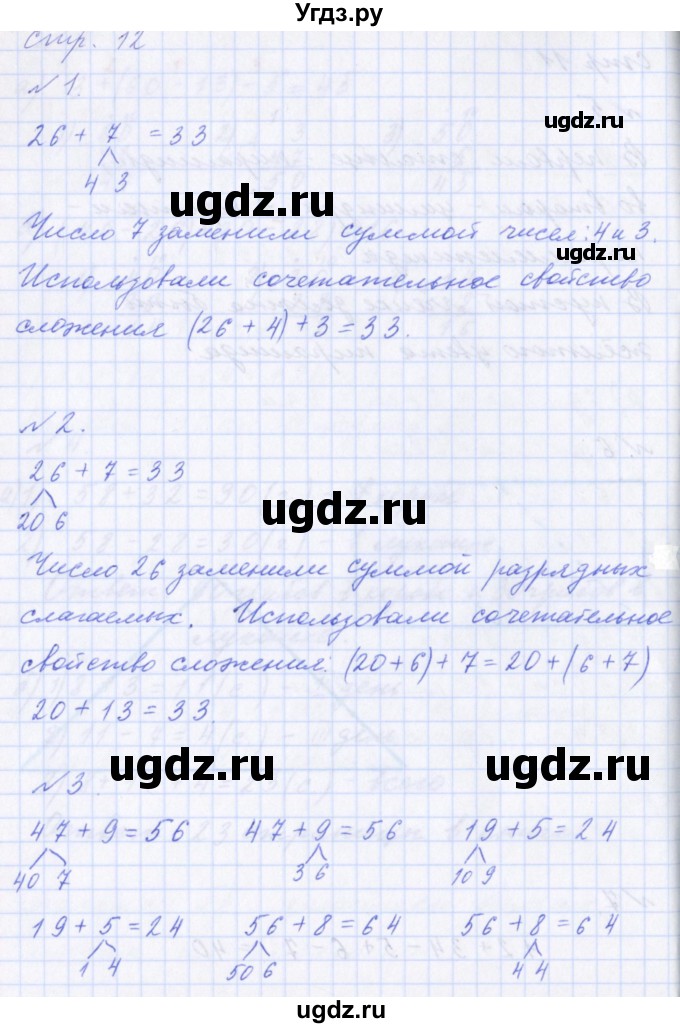 Угдз.ру
стр. 12
№ 1.
26 + 7 = 33
4 3
Число 7 заменили суммой чисел: 4 и 3.
Использовали сочетательное свойство
сложения (26 + 4) + 3 = 33.
№ 2.
26 + 7 = 33
20 6
Число 26 заменили суммой разрядных
слагаемых. Использовали сочетательное
свойство сложения: (20+6) + 7 = 20 + (6 + 7)
20 + 13 = 33.
№ 3.
47 + 9 = 56 47 + 9 = 56 19 + 5 = 24
40 7 3 6 10 9
19 + 5 = 24 56 + 8 = 64 56 + 8 = 64
1 4 50 6 4 4
ugdz.ru
ugdz.ru
ugdz.ru
ugdz.ru
ugdz.ru
ugdz.ru
ugdz.ru
ugdz.ru
ugdz.ru